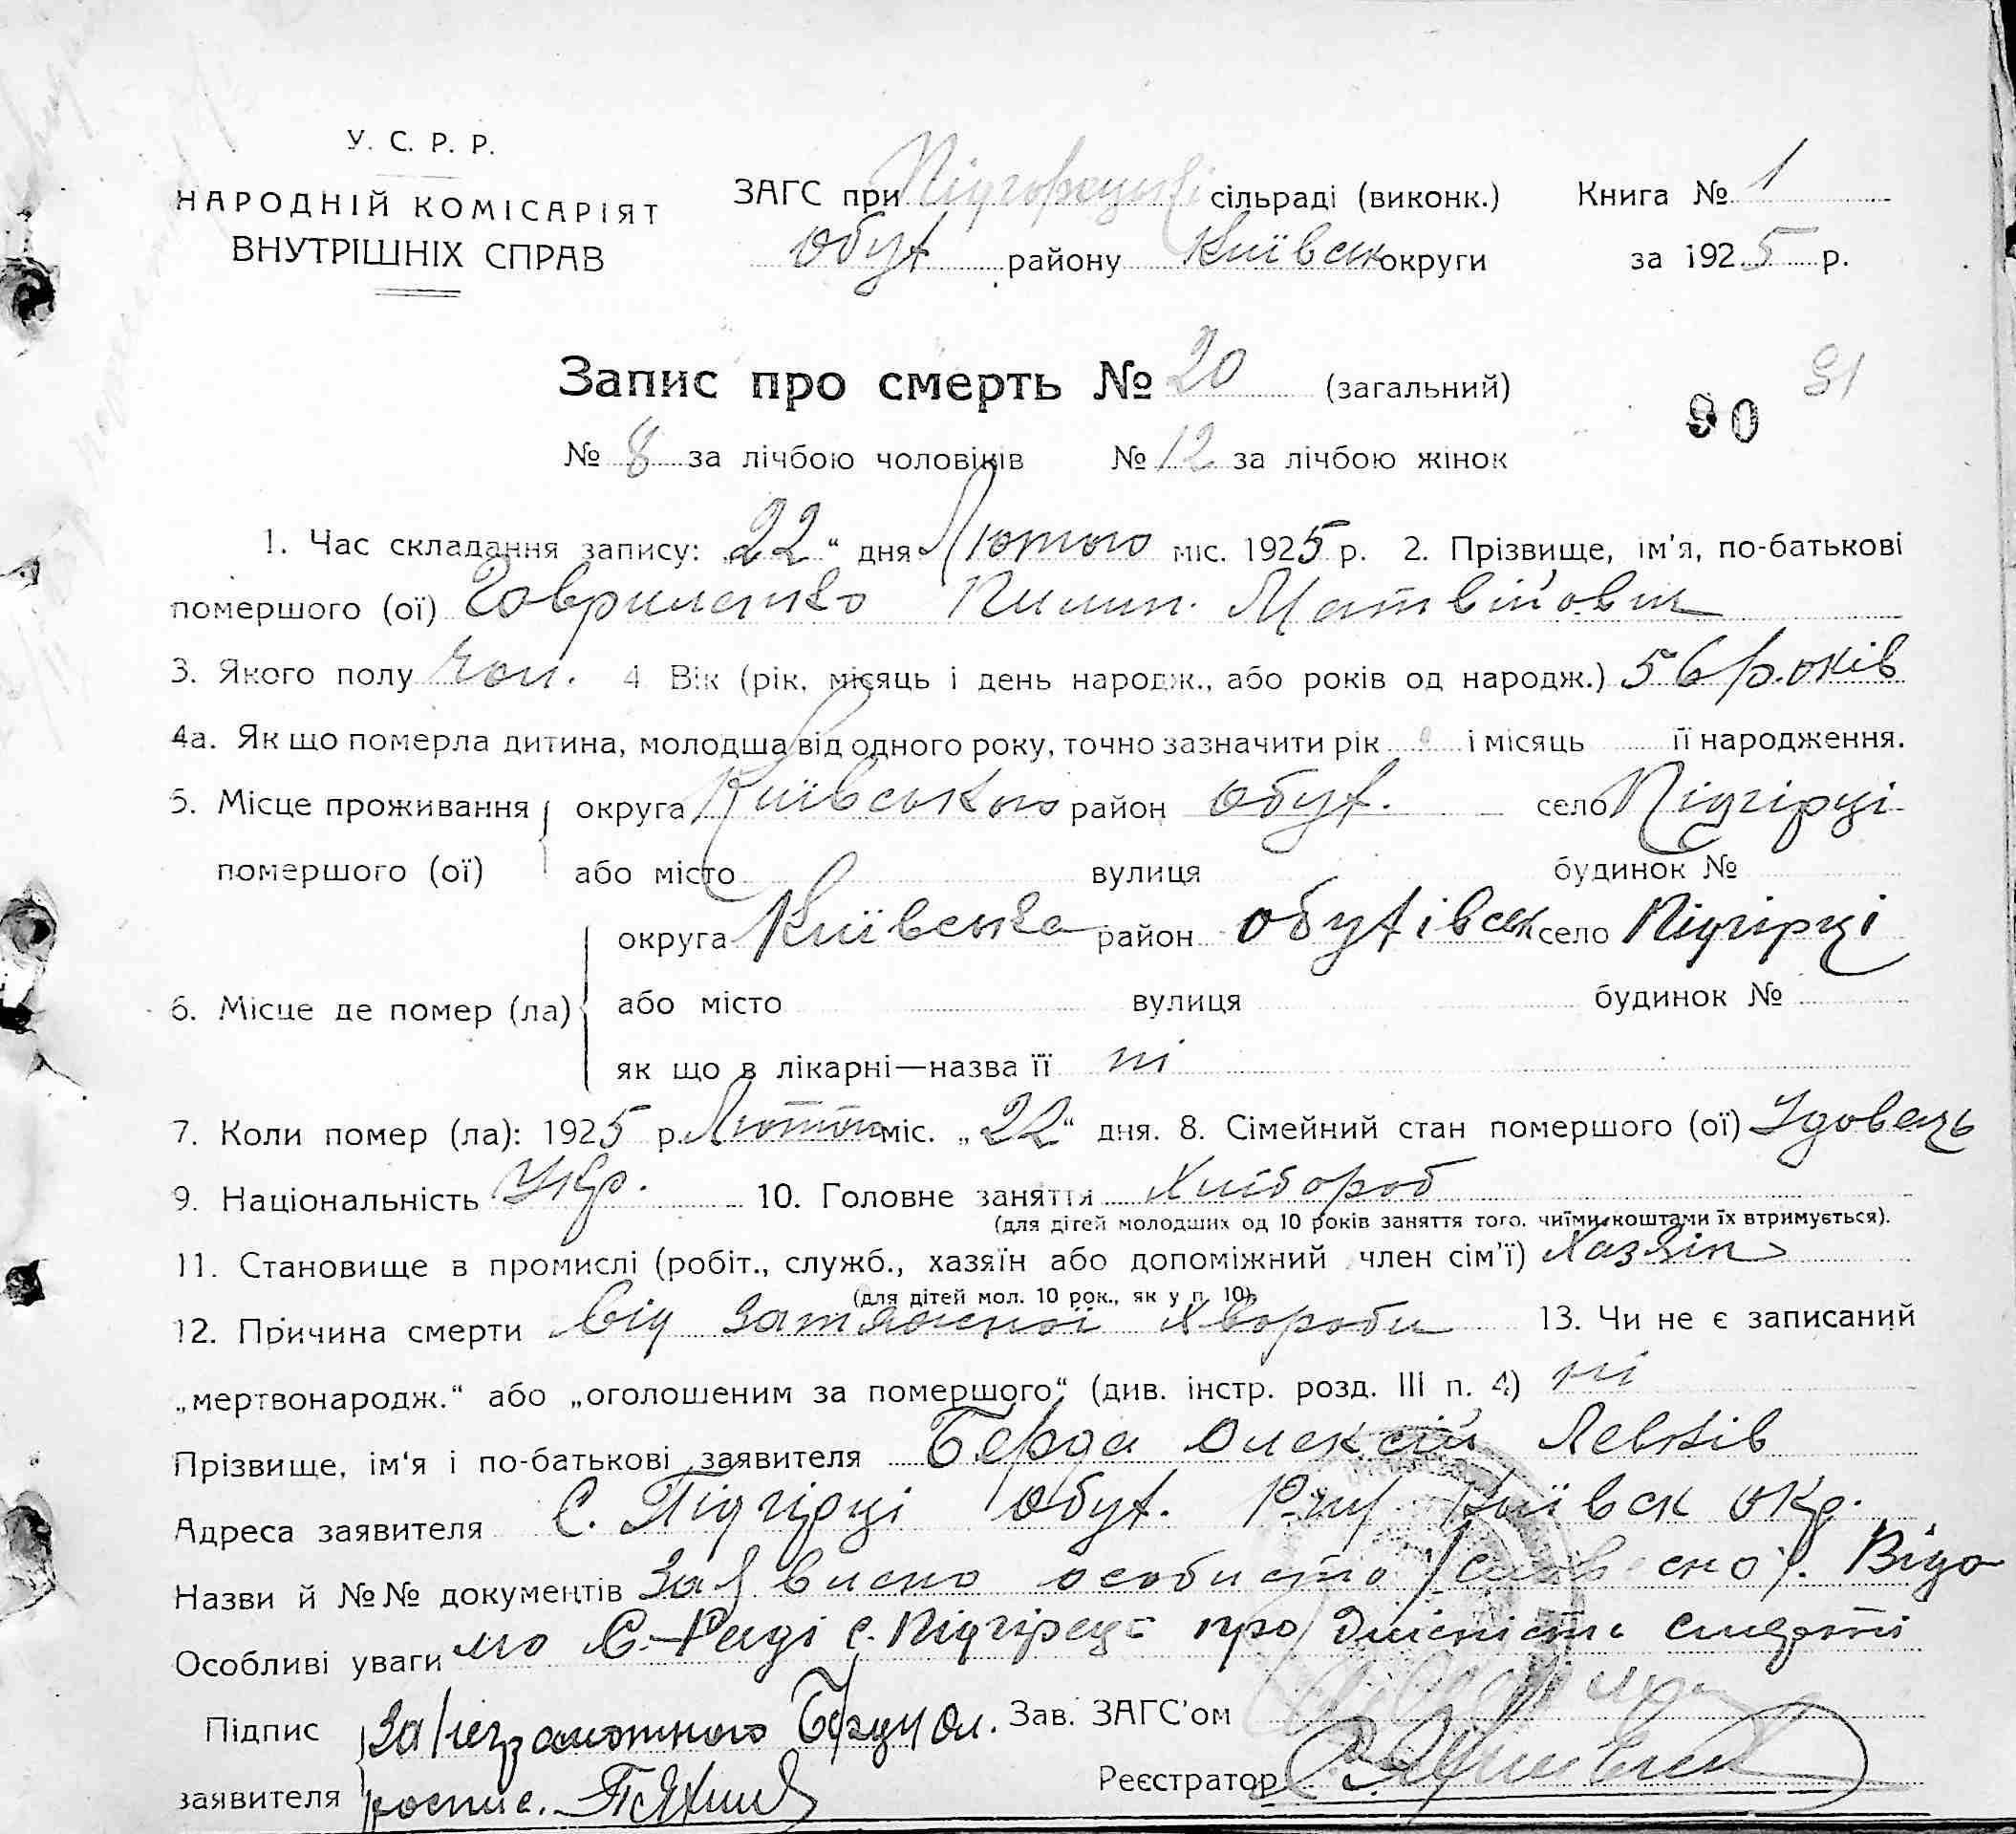 У. С. Р. Р.
НАРОДНІЙ КОМІСАРІЯТ
ВНУТРІШНІХ СПРАВ
ЗАГС при Підгорецькі сільраді (виконк.) Книга № 1
Обух району Київськ округи за 1925 р.
Запис про смерть № 20 (загальний)
91
90
№ 8 за лічбою чоловіків № 12 за лічбою жінок
1. Час складання запису: „22“ дня Лютого міс. 1925 р. 2. Прізвище, ім'я, по-батькові
помершого (ої) Говриленко Пилип. Матвійович
3. Якого полу чол. 4 Вік (рік, місяць і день народж., або років од народж.) 56 років
4а. Як що померла дитина, молодша від одного року, точно зазначити рік і місяць її народження.
5. Місце проживання округа Київського район Обух. село Підгірці
помершого (ої) або місто вулиця будинок №
округа Київська район Обухівськ село Підгірці
6. Місце де помер (ла) або місто вулиця будинок №
як що в лікарні—назва її ні
7. Коли помер (ла): 1925 р. Лютого міс. „22“ дня. 8. Сімейний стан помершого (ої) Удовець
9. Національність Укр. 10. Головне заняття Хлібороб
(для дітей молодших од 10 років заняття того, чиїми коштами їх втримується).
11. Становище в промислі (робіт., служб., хазяїн або допоміжний член сім'ї) Хазяін
(для дітей мол. 10 рок., як у п. 10).
12. Причина смерти від затяжної хвороби 13. Чи не є записаний
„мертвонародж.“ або „оголошеним за помершого“ (див. інстр. розд. III п. 4) ні
Прізвище, ім'я і по-батькові заявителя Берда Олексій Левків
Адреса заявителя С. Підгірці Обух. Р-ну Київськ окр.
Назви й №№ документів Заявлено особисто /словесно/. Відо
Особливі уваги мо С.-Раді с. Підгірець про дійсність смерті
Підпис За незаможного Берду Ол. Зав. ЗАГС'ом
заявителя роспис. Реєстратор